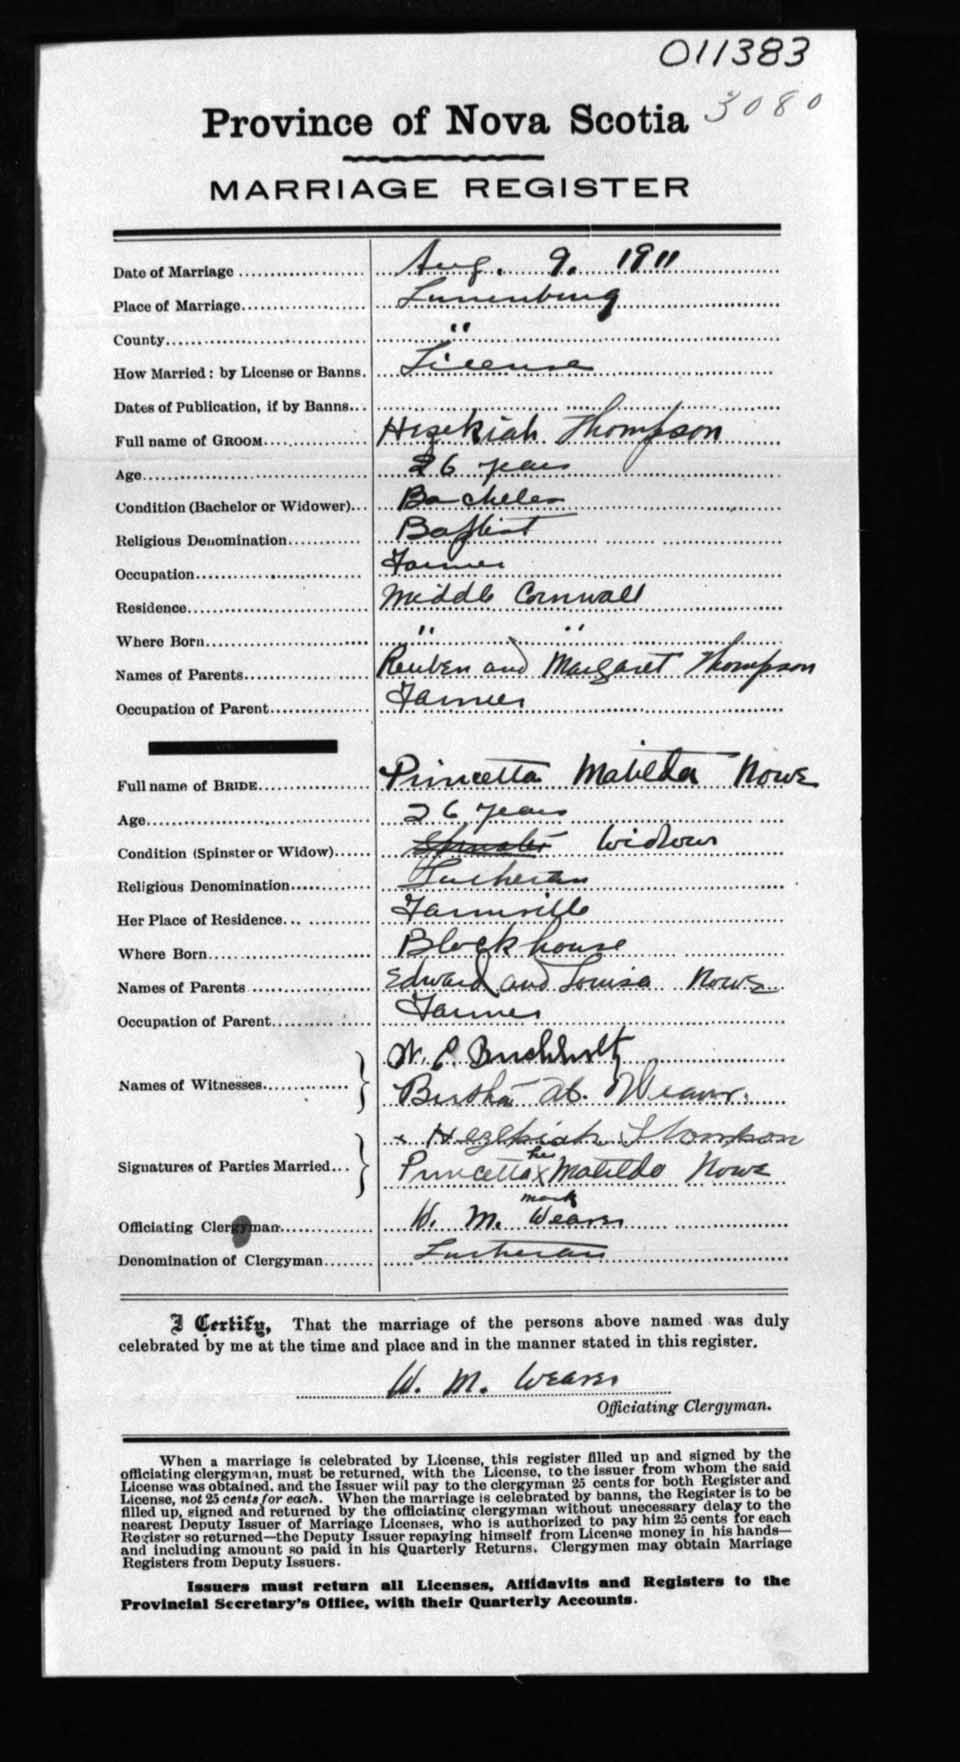 011383
3080
Province of Nova Scotia
MARRIAGE REGISTER
Date of Marriage .................... Aug. 9. 1911
Place of Marriage.................... Lunenburg
County.............................. "
How Married: by License or Banns. License
Dates of Publication, if by Banns...
Full name of GROOM.................. Hezekiah Thompson
Age................................. 26 years
Condition (Bachelor or Widower)... Bachelor
Religious Denomination............ Baptist
Occupation.......................... Farmer
Residence........................... Middle Cornwall
Where Born......................... " "
Names of Parents................... Reuben and Margaret Thompson
Occupation of Parent............... Farmer
Full name of BRIDE.................. Princetta Matilda Nowe
Age................................. 26 years
Condition (Spinster or Widow)...... Spinster Widow
Religious Denomination............ Lutheran
Her Place of Residence............ Farmville
Where Born......................... Blockhouse
Names of Parents .................. Edward and Louisa Nowe
Occupation of Parent............... Farmer
W. P. Buchholtz
Names of Witnesses...............
Bertha M. Weaver.
x Hezekiah Thompson
Signatures of Parties Married...
her
Princetta x Matilda Nowe
mark
Officiating Clergyman.............. W. M. Weaver
Denomination of Clergyman........ Lutheran
I Certify, That the marriage of the persons above named was duly
celebrated by me at the time and place and in the manner stated in this register.
W. M. Weaver
Officiating Clergyman.
When a marriage is celebrated by License, this register filled up and signed by the
officiating clergyman, must be returned, with the License, to the issuer from whom the said
License was obtained, and the Issuer will pay to the clergyman 25 cents for both Register and
License, not 25 cents for each. When the marriage is celebrated by banns, the Register is to be
filled up, signed and returned by the officiating clergyman without unnecessary delay to the
nearest Deputy Issuer of Marriage Licenses, who is authorized to pay him 25 cents for each
Register so returned—the Deputy Issuer repaying himself from License money in his hands—
and including amount so paid in his Quarterly Returns. Clergymen may obtain Marriage
Registers from Deputy Issuers.
Issuers must return all Licenses, Affidavits and Registers to the
Provincial Secretary's Office, with their Quarterly Accounts.